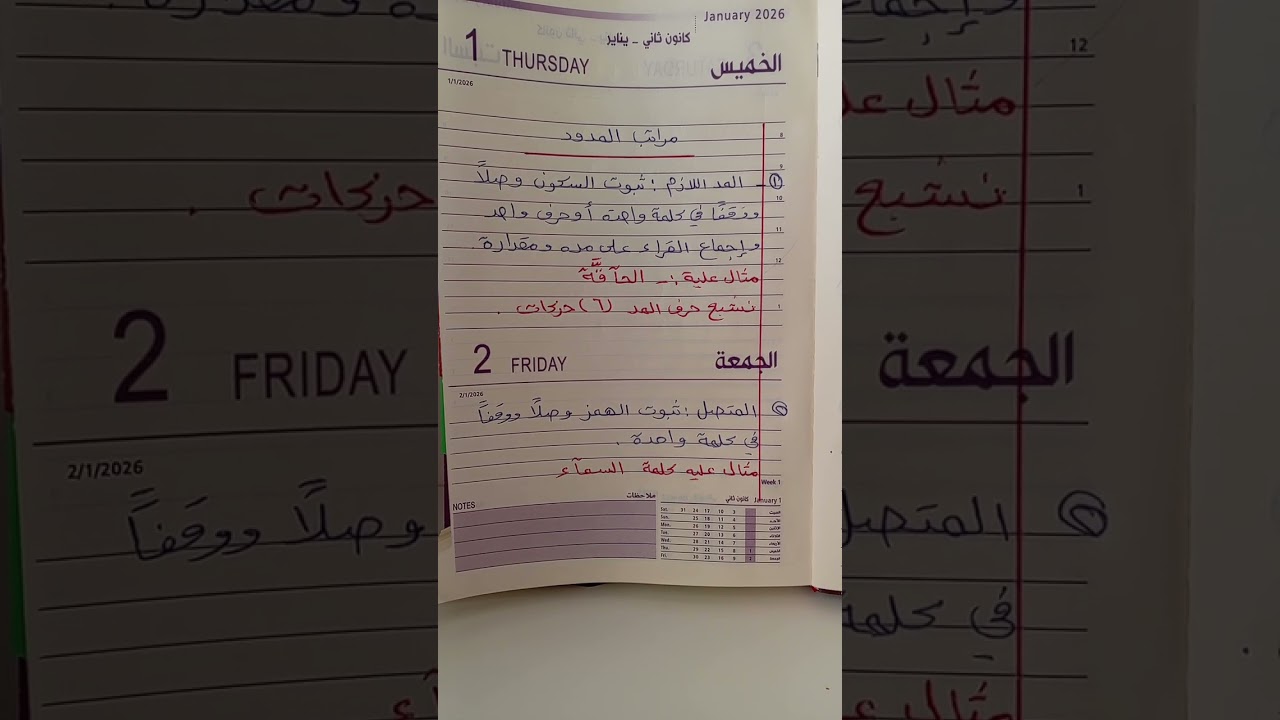 January 2026
كانون ثاني - يناير
1 THURSDAY الخميس
1/1/2026
مراتب المدود
① - المد اللازم : ثبوت السكون وصلاً
ووقفًا في كلمة واحدة أو حرف واحد
وإجماع القراء على مده ومقداره .
مثال علية :- الحآقَّة
نشبع حرف المد (٦) حركات .
2 FRIDAY الجمعة
2/1/2026
② المتصل : ثبوت الهمز وصلاً ووقفاً
في كلمة واحدة .
مثال عليه كلمة السمآء
Week 1
NOTES ملاحظات
كانون ثاني January 1
Sat. 31 24 17 10 3 السبت
Sun. 25 18 11 4 الأحد
Mon. 26 19 12 5 الاثنين
Tue. 27 20 13 6 الثلاثاء
Wed. 28 21 14 7 الأربعاء
Thu. 29 22 15 8 1 الخميس
Fri. 30 23 16 9 2 الجمعة